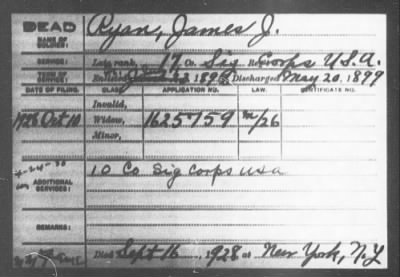 DEAD Ryan, James J.
NAME OF SOLDIER:
SERVICE: Late rank, 17 Co. Sig Corps U.S.A.
TERM OF SERVICE: Enlisted 1898, Discharged May 20, 1899
DATE OF FILING. CLASS. APPLICATION NO. LAW. CERTIFICATE NO.
Invalid,
1928 Oct 10 Widow, 1625759 m/26
Minor,
ADDITIONAL SERVICES: 10 Co Sig Corps USA
REMARKS:
Died Sept 16, 1928 at New York, N.Y